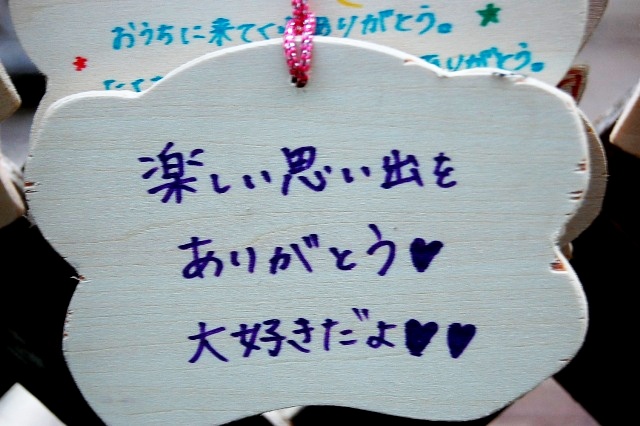 おうちに来てくれありがとう。
ありがとう。
楽しい思い出を
ありがとう♥
大好きだよ♥♥